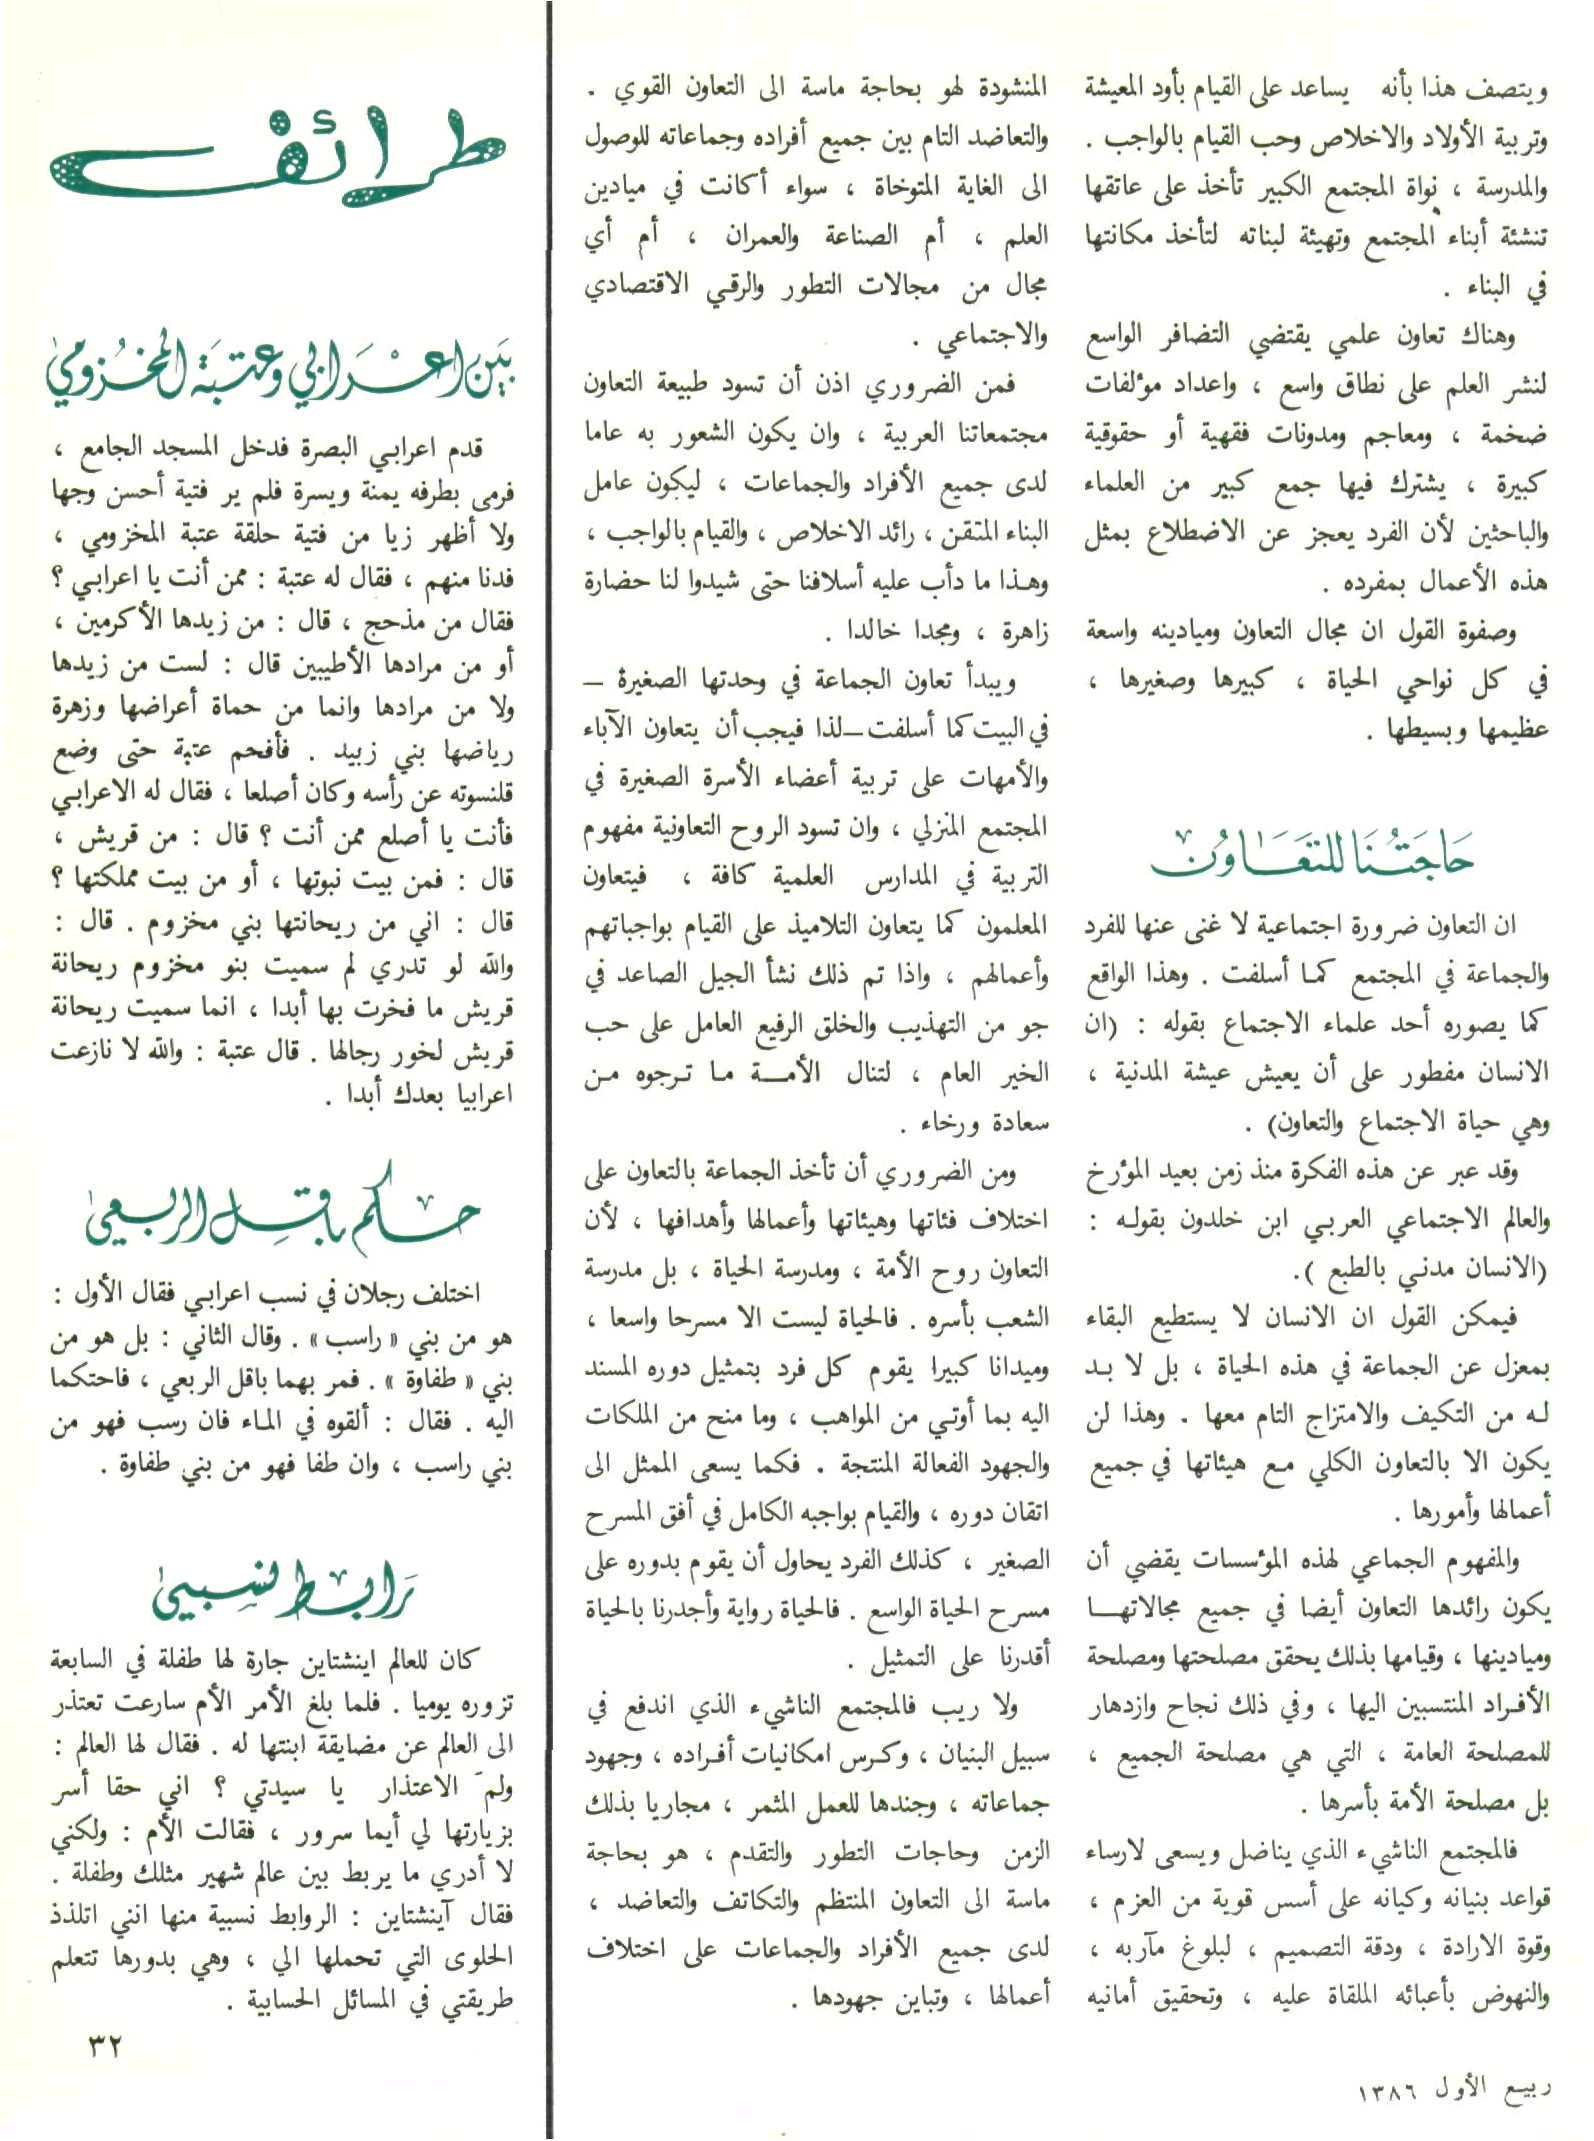 ويتصف هذا بأنه يساعد على القيام بأود المعيشة
وتربية الأولاد والاخلاص وحب القيام بالواجب .
والمدرسة ، نواة المجتمع الكبير تأخذ على عاتقها
تنشئة أبناء المجتمع وتهيئة لبناته لتأخذ مكانتها
في البناء .
وهناك تعاون علمي يقتضي التضافر الواسع
لنشر العلم على نطاق واسع ، واعداد مؤلفات
ضخمة ، ومعاجم ومدونات فقهية أو حقوقية
كبيرة ، يشترك فيها جمع كبير من العلماء
والباحثين لأن الفرد يعجز عن الاضطلاع بمثل
هذه الأعمال بمفرده .
وصفوة القول ان مجال التعاون وميادينه واسعة
في كل نواحي الحياة ، كبيرها وصغيرها ،
عظيمها وبسيطها .
حَاجَتُنَا للتعَاوُن
ان التعاون ضرورة اجتماعية لا غنى عنها للفرد
والجماعة في المجتمع كما أسلفت . وهذا الواقع
كما يصوره أحد علماء الاجتماع بقوله : (ان
الانسان مفطور على أن يعيش عيشة المدنية ،
وهي حياة الاجتماع والتعاون) .
وقد عبر عن هذه الفكرة منذ زمن بعيد المؤرخ
والعالم الاجتماعي العربي ابن خلدون بقوله :
(الانسان مدني بالطبع ).
فيمكن القول ان الانسان لا يستطيع البقاء
بمعزل عن الجماعة في هذه الحياة ، بل لا بد
له من التكيف والامتزاج التام معها . وهذا لن
يكون الا بالتعاون الكلي مع هيئاتها في جميع
أعمالها وأمورها .
والمفهوم الجماعي لهذه المؤسسات يقضي أن
يكون رائدها التعاون أيضا في جميع مجالاتها
وميادينها ، وقيامها بذلك يحقق مصلحتها ومصلحة
الأفراد المنتسبين اليها ، وفي ذلك نجاح وازدهار
للمصلحة العامة ، التي هي مصلحة الجميع ،
بل مصلحة الأمة بأسرها .
فالمجتمع الناشيء الذي يناضل ويسعى لارساء
قواعد بنيانه وكيانه على أسس قوية من العزم ،
وقوة الارادة ، ودقة التصميم ، لبلوغ مآربه ،
والنهوض بأعبائه الملقاة عليه ، وتحقيق أمانيه
المنشودة لهو بحاجة ماسة الى التعاون القوي .
والتعاضد التام بين جميع أفراده وجماعاته للوصول
الى الغاية المتوخاة ، سواء أكانت في ميادين
العلم ، أم الصناعة والعمران ، أم أي
مجال من مجالات التطور والرقي الاقتصادي
والاجتماعي .
فمن الضروري اذن أن تسود طبيعة التعاون
مجتمعاتنا العربية ، وان يكون الشعور به عاما
لدى جميع الأفراد والجماعات ، ليكون عامل
البناء المتقن ، رائد الاخلاص ، والقيام بالواجب ،
وهذا ما دأب عليه أسلافنا حتى شيدوا لنا حضارة
زاهرة ، ومجدا خالدا .
ويبدأ تعاون الجماعة في وحدتها الصغيرة –
في البيت كما أسلفت–لذا فيجب أن يتعاون الآباء
والأمهات على تربية أعضاء الأسرة الصغيرة في
المجتمع المنزلي ، وان تسود الروح التعاونية مفهوم
التربية في المدارس العلمية كافة ، فيتعاون
المعلمون كما يتعاون التلاميذ على القيام بواجباتهم
وأعمالهم ، واذا تم ذلك نشأ الجيل الصاعد في
جو من التهذيب والخلق الرفيع العامل على حب
الخير العام ، لتنال الأمة ما ترجوه من
سعادة ورخاء .
ومن الضروري أن تأخذ الجماعة بالتعاون على
اختلاف فئاتها وهيئاتها وأعمالها وأهدافها ، لأن
التعاون روح الأمة ، ومدرسة الحياة ، بل مدرسة
الشعب بأسره . فالحياة ليست الا مسرحا واسعا ،
وميدانا كبيرا يقوم كل فرد بتمثيل دوره المسند
اليه بما أوتي من المواهب ، وما منح من الملكات
والجهود الفعالة المنتجة . فكما يسعى الممثل الى
اتقان دوره ، والقيام بواجبه الكامل في أفق المسرح
الصغير ، كذلك الفرد يحاول أن يقوم بدوره على
مسرح الحياة الواسع . فالحياة رواية وأجدرنا بالحياة
أقدرنا على التمثيل .
ولا ريب فالمجتمع الناشيء الذي اندفع في
سبيل البنيان ، وكرس امكانيات أفراده ، وجهود
جماعاته ، وجندها للعمل المثمر ، مجاريا بذلك
الزمن وحاجات التطور والتقدم ، هو بحاجة
ماسة الى التعاون المنتظم والتكاتف والتعاضد ،
لدى جميع الأفراد والجماعات على اختلاف
أعمالها ، وتباين جهودها .
طرائف
بَين اعْرَابي وعتبَة المخزومي
قدم اعرابي البصرة فدخل المسجد الجامع ،
فرمى بطرفه يمنة ويسرة فلم ير فتية أحسن وجها
ولا أظهر زيا من فتية حلقة عتبة المخزومي ،
فدنا منهم ، فقال له عتبة : ممن أنت يا اعرابي ؟
فقال من مذحج ، قال : من زيدها الأكرمين ،
أو من مرادها الأطيبين قال : لست من زيدها
ولا من مرادها وانما من حماة أعراضها وزهرة
رياضها بني زبيد . فأفحم عتبة حتى وضع
قلنسوته عن رأسه وكان أصلعا ، فقال له الاعرابي
فأنت يا أصلع ممن أنت ؟ قال : من قريش ،
قال : فمن بيت نبوتها ، أو من بيت مملكتها ؟
قال : اني من ريحانتها بني مخزوم . قال :
والله لو تدري لم سميت بنو مخزوم ريحانة
قريش ما فخرت بها أبدا ، انما سميت ريحانة
قريش لخور رجالها . قال عتبة : والله لا نازعت
اعرابيا بعدك أبدا .
حكم باقل الربعي
اختلف رجلان في نسب اعرابي فقال الأول :
هو من بني « راسب » . وقال الثاني : بل هو من
بني « طفاوة » . فمر بهما باقل الربعي ، فاحتكما
اليه . فقال : ألقوه في الماء فان رسب فهو من
بني راسب ، وان طفا فهو من بني طفاوة .
رَابط نسبي
كان للعالم اينشتاين جارة لها طفلة في السابعة
تزوره يوميا . فلما بلغ الأمر الأم سارعت تعتذر
الى العالم عن مضايقة ابنتها له . فقال لها العالم :
ولمَ الاعتذار يا سيدتي ؟ اني حقا أسر
بزيارتها لي أيما سرور ، فقالت الأم : ولكني
لا أدري ما يربط بين عالم شهير مثلك وطفلة .
فقال آينشتاين : الروابط نسبية منها انني اتلذذ
الحلوى التي تحملها الي ، وهي بدورها تتعلم
طريقتي في المسائل الحسابية .
٣٢
ربيع الأول ١٣٨٦